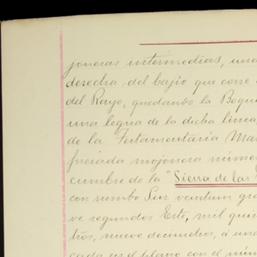 joneras intermedias, una
derecha del bajío que corre
del Rayo, quedando la Boqui
una legua de la dicha línea
de la Testamentaría Mar
friada mojonera número
cumbre de la "Sierra de las
con rumbo Sur veintiun gra
ve segundos Este, mil quin
tros, nueve decímetros, á una
cada en el plano con el núm